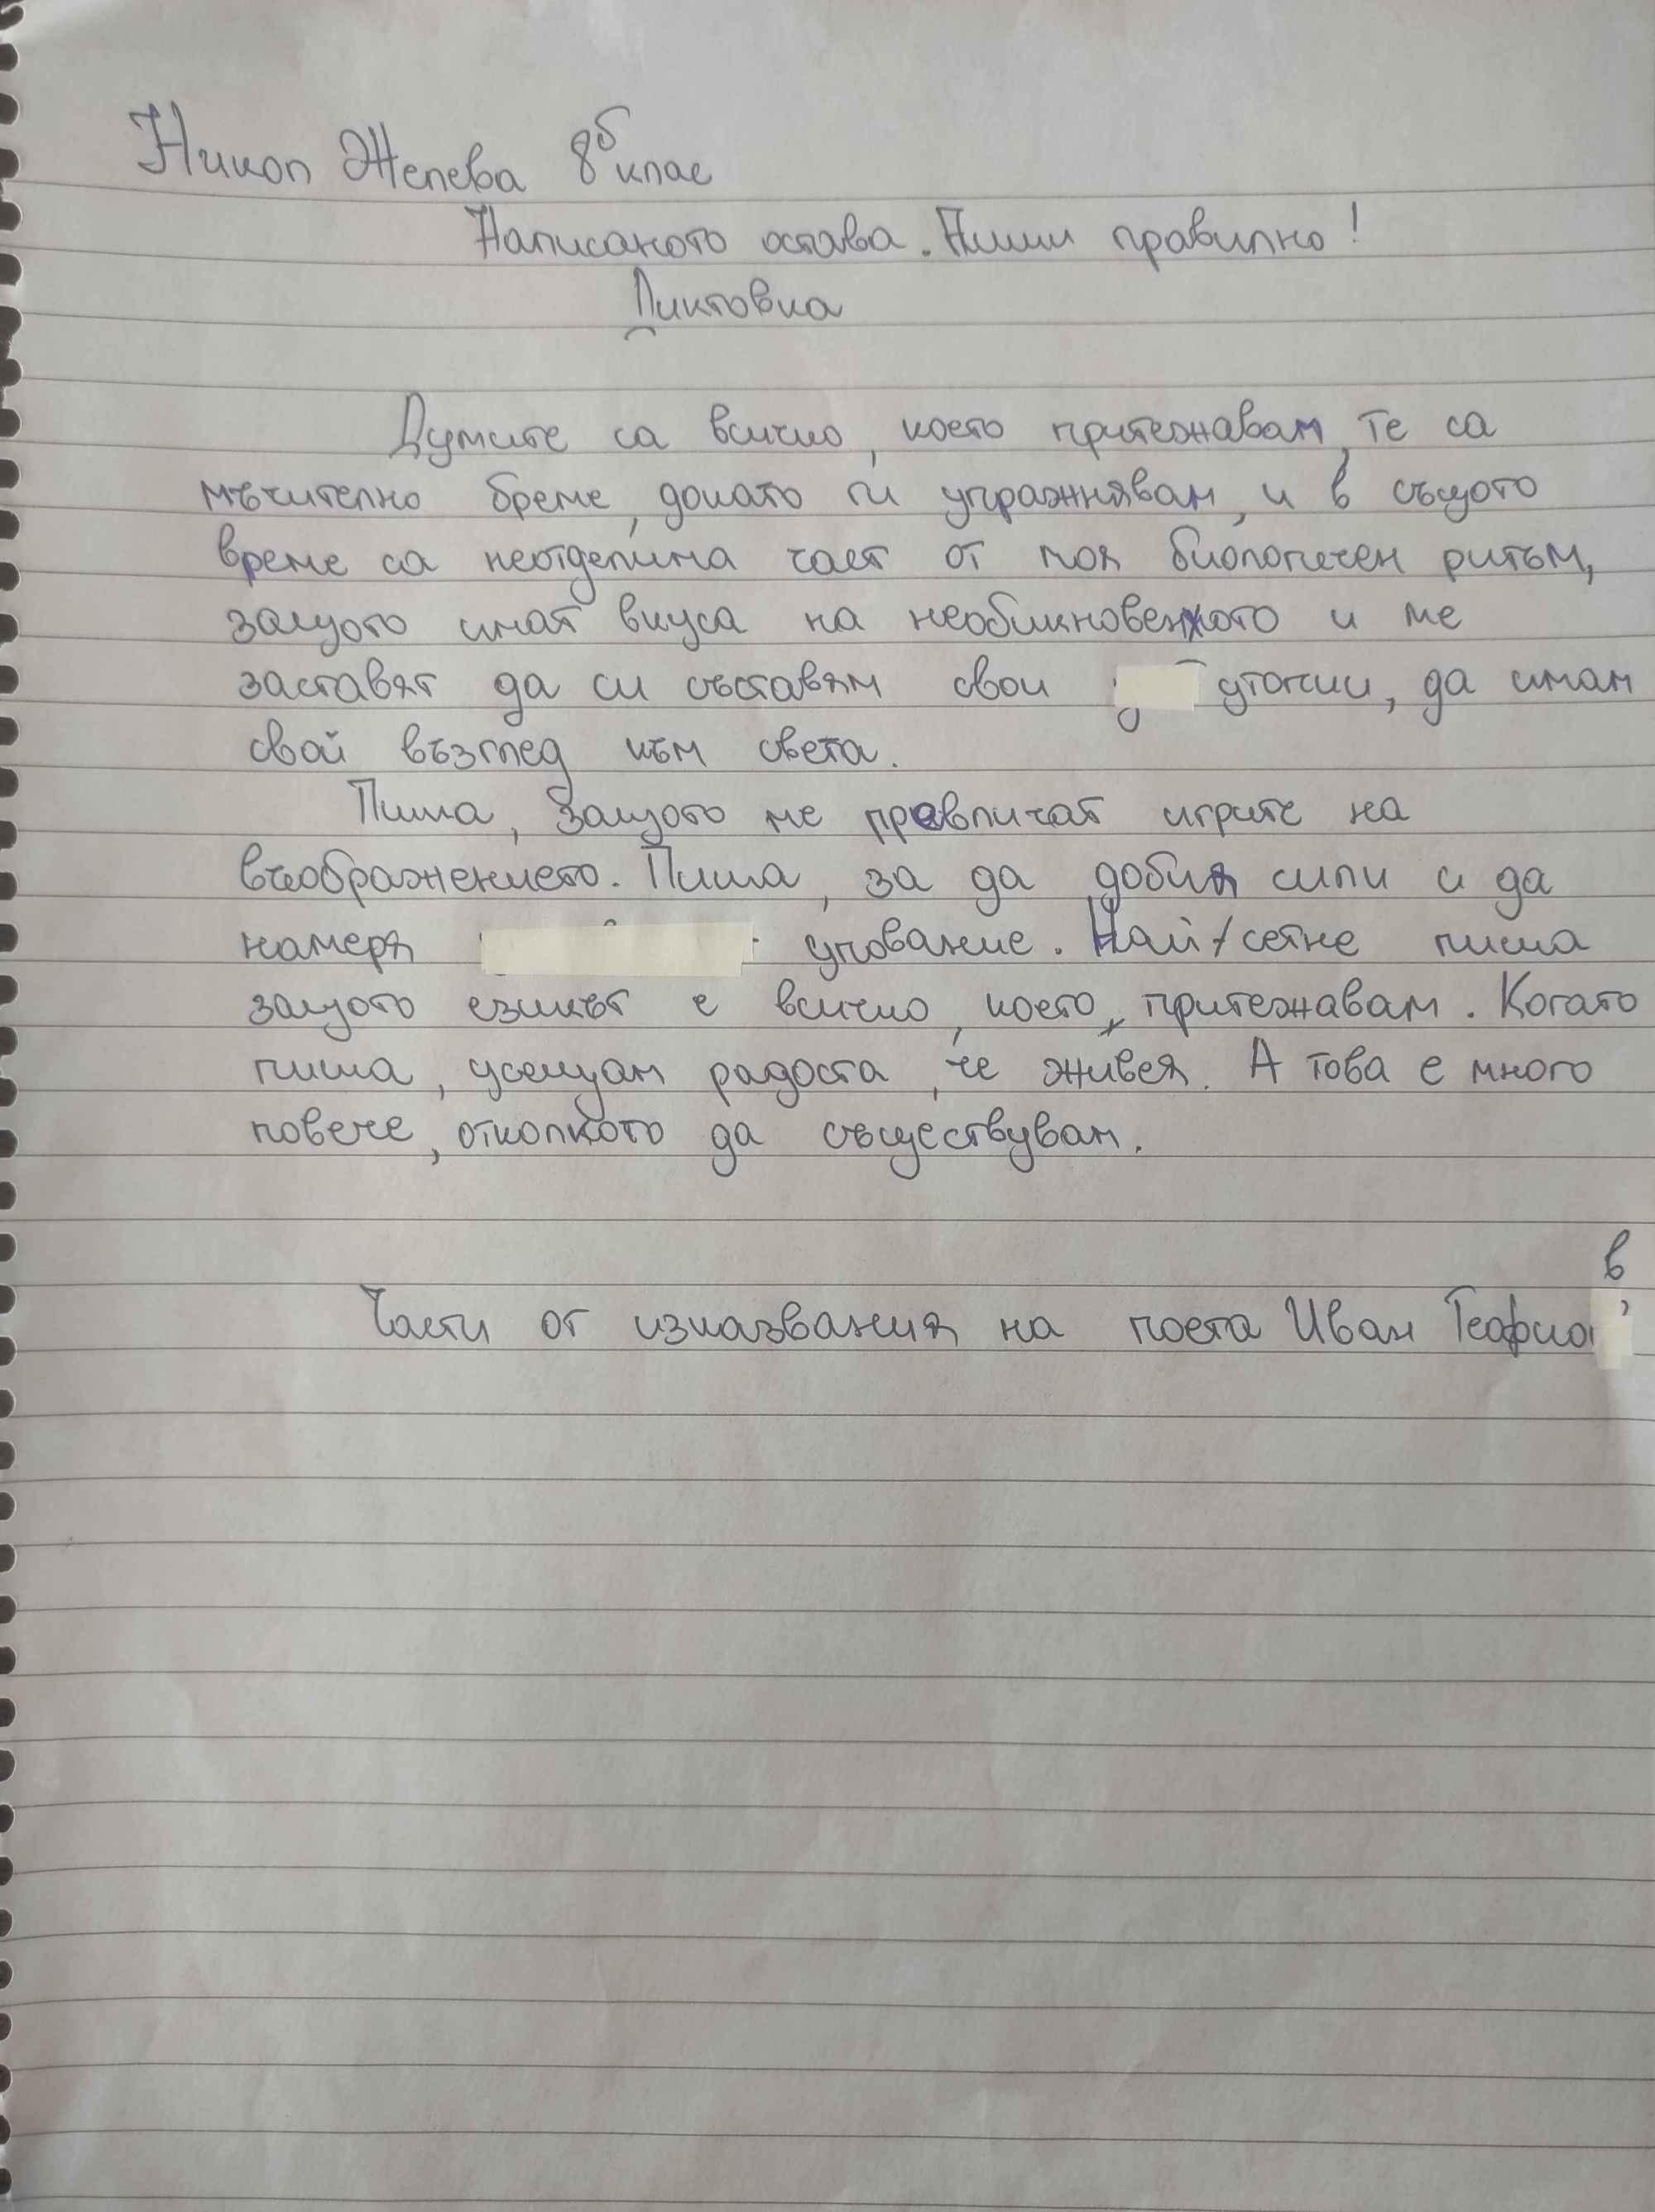 Никол Желева 8б клас
Написаното остава. Пиши правилно!
Диктовка
Думите са всичко, което притежавам, те са
мъчително бреме, докато ги упражнявам, и в същото
време са неотделима част от моя биологичен ритъм,
защото имат вкуса на необикновеното и ме
заставят да си съставям свои утопии, да имам
свой възглед към света.
Пиша, защото ме привличат игрите на
въображението. Пиша, за да добия сили и да
намеря упование. Най-сетне пиша
защото езикът е всичко, което притежавам. Когато
пиша, усещам радоста, че живея. А това е много
повече, отколкото да съществувам.
в
Части от изказвания на поета Иван